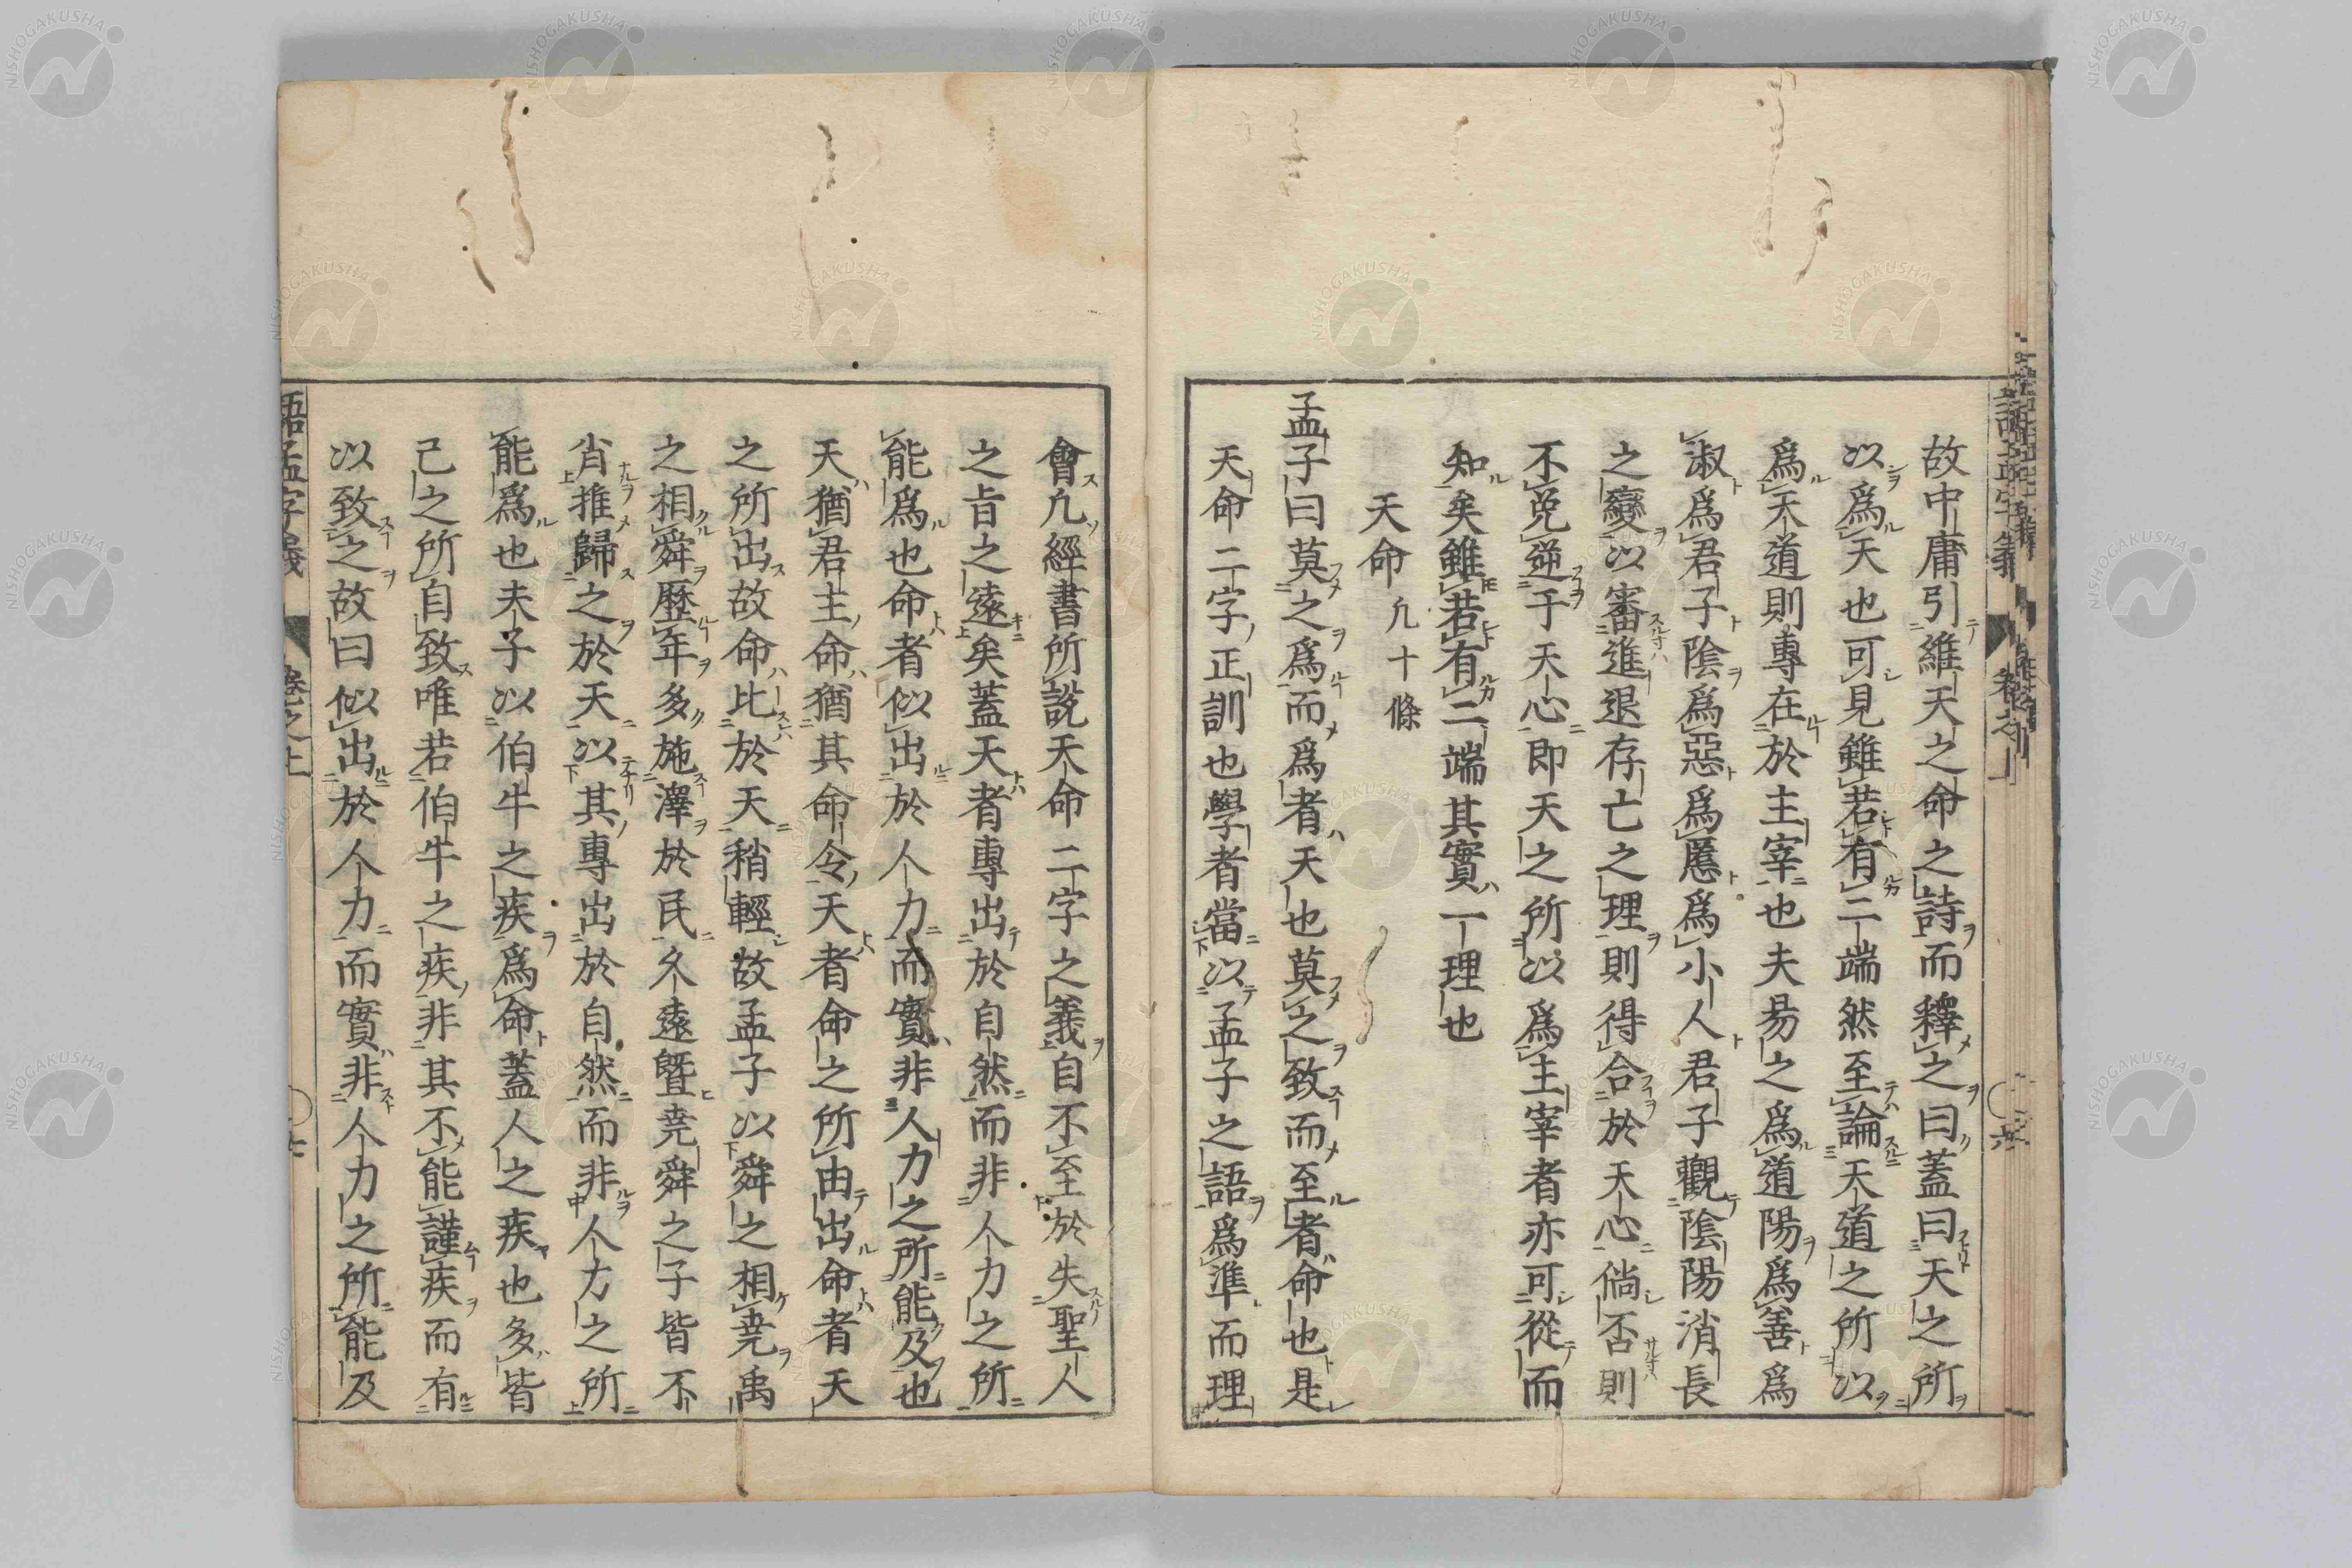 故中庸引維天之命之詩而釋之曰蓋曰天之所
以爲天也可見雖若有二端然至論天道之所以
爲天道則專在於主宰也夫易之爲道陽爲善爲
淑爲君子陰爲惡爲慝爲小人君子觀陰陽消長
之變以審進退存亡之理則得合於天心倘否則
不免逆于天心即天之所以爲主宰者亦可從而
知矣雖若有二端其實一理也
天命 凢十條
孟子曰莫之爲而爲者天也莫之致而至者命也是
天命二字正訓也學者當以孟子之語爲準而理
會凢經書所説天命二字之義自不至於失聖人
之旨之遠矣蓋天者專出於自然而非人力之所
能爲也命者似出於人力而實非人力之所能及也
天猶君主命猶其命令天者命之所由出命者天
之所出故命比於天稍輕故孟子以舜之相堯禹
之相舜歷年多施澤於民久遠曁堯舜之子皆不
肖推歸之於天以其專出於自然而非人力之所
能爲也夫子以伯牛之疾爲命蓋人之疾也多皆
己之所自致唯若伯牛之疾非其不能謹疾而有
以致之故曰似出於人力而實非人力之所能及
語孟字義 卷之上